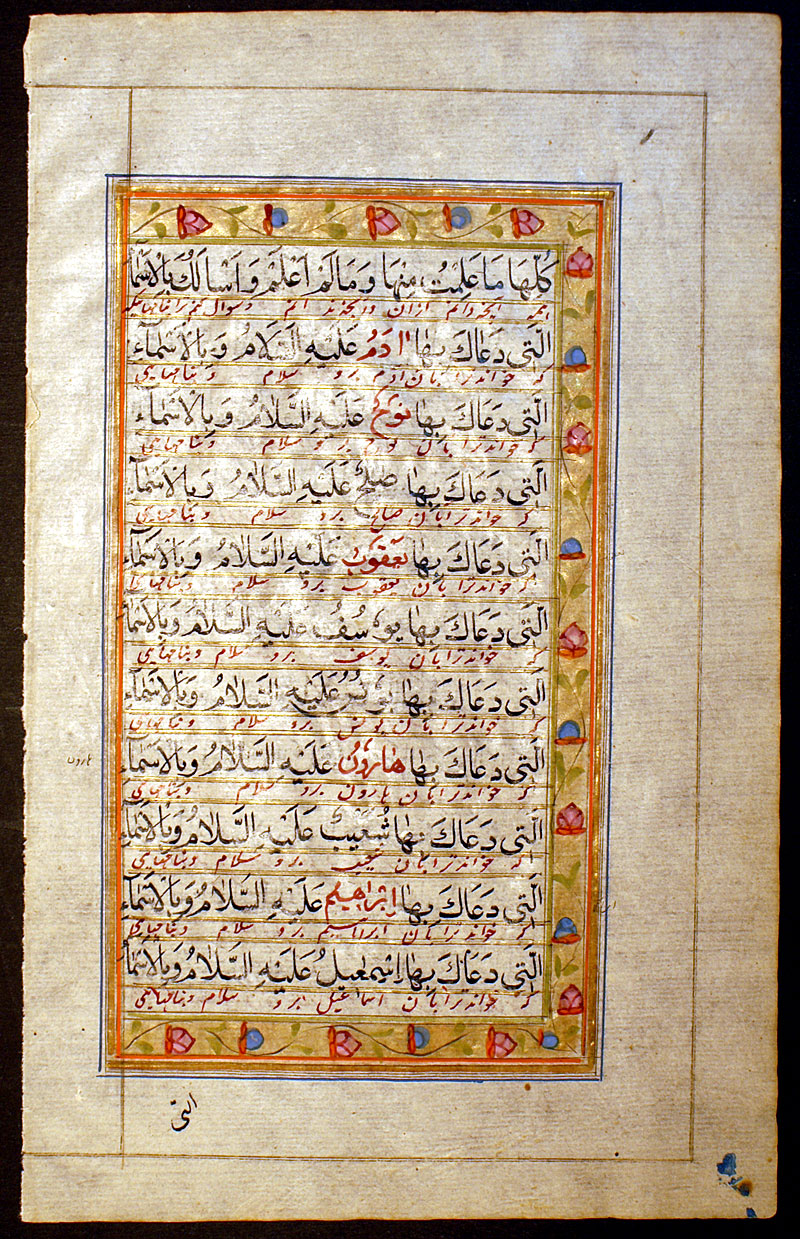 كُلِّهَا مَا عَلِمْتُ مِنْهَا وَمَا لَمْ اَعْلَمْ وَاَسْاَلُكَ بِالْاَسْمَآءِ
الَّتِى دَعَاكَ بِهَا اٰدَمُ عَلَيْهِ السَّلَامُ وَبِالْاَسْمَآءِ
که خواند ترا بان ادم برو سلام وبنامهایی
الَّتِى دَعَاكَ بِهَا نُوْحٌ عَلَيْهِ السَّلَامُ وَبِالْاَسْمَآءِ
که خواند ترا بان نوح برو سلام وبنامهایی
الَّتِى دَعَاكَ بِهَا صٰلِحٌ عَلَيْهِ السَّلَامُ وَبِالْاَسْمَآءِ
که خواند ترا بان صالح برو سلام وبنامهایی
الَّتِى دَعَاكَ بِهَا يَعْقُوْبُ عَلَيْهِ السَّلَامُ وَبِالْاَسْمَآءِ
که خواند ترا بان یعقوب برو سلام وبنامهایی
الَّتِى دَعَاكَ بِهَا يُوْسُفُ عَلَيْهِ السَّلَامُ وَبِالْاَسْمَآءِ
که خواند ترا بان یوسف برو سلام وبنامهایی
الَّتِى دَعَاكَ بِهَا يُوْنُسُ عَلَيْهِ السَّلَامُ وَبِالْاَسْمَآءِ
که خواند ترا بان یونس برو سلام وبنامهایی
الَّتِى دَعَاكَ بِهَا هَارُوْنُ عَلَيْهِ السَّلَامُ وَبِالْاَسْمَآءِ
هارون
که خواند ترا بان هارون برو سلام وبنامهایی
الَّتِى دَعَاكَ بِهَا شُعَيْبٌ عَلَيْهِ السَّلَامُ وَبِالْاَسْمَآءِ
که خواند ترا بان شعیب برو سلام وبنامهایی
الَّتِى دَعَاكَ بِهَا اِبْرَاهِيْمُ عَلَيْهِ السَّلَامُ وَبِالْاَسْمَآءِ
که خواند ترا بان ابراهیم برو سلام وبنامهایی
الَّتِى دَعَاكَ بِهَا اِسْمٰعِيْلُ عَلَيْهِ السَّلَامُ وَبِالْاَسْمَآءِ
که خواند ترا بان اسماعیل برو سلام وبنامهایی
الَّتى